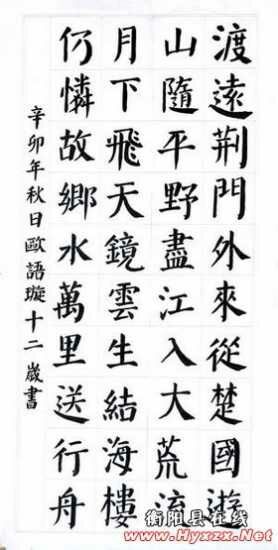 渡遠荆門外來從楚國遊
山隨平野盡江入大荒流
月下飛天鏡雲生結海樓
仍憐故鄉水萬里送行舟
辛卯年秋日歐語璇十二歲書
衡阳县在线
www.Hyxzx.Net